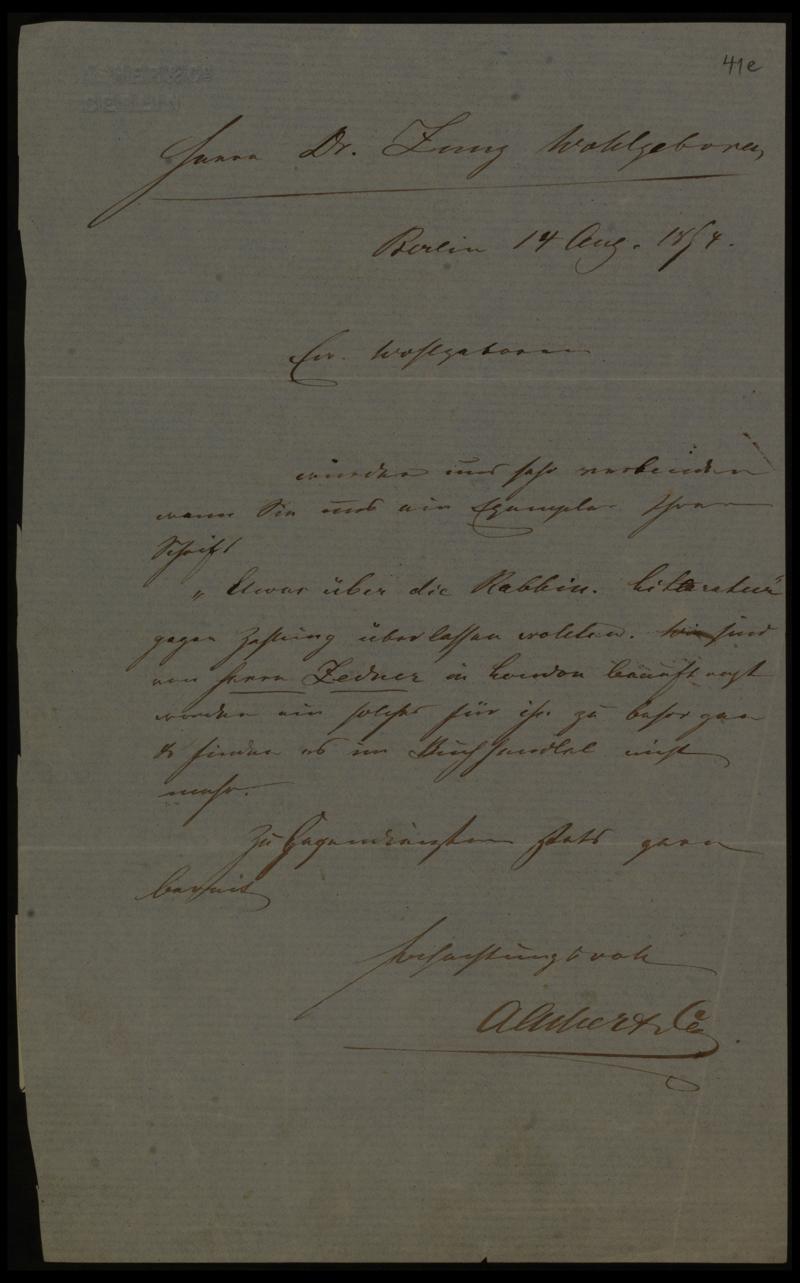 41e
A. ASHER & Co
BERLIN
Herrn Dr. Zunz Wohlgeboren
Berlin 14 Aug. 1854.
Ew. Wohlgeboren
würden uns sehr verbinden
wenn Sie uns ein Exemplar Ihrer
Schrift
„Etwas über die Rabbin. Literatur"
gegen Zahlung überlassen wollten. Wir sind
von Herrn Zedner in London beauftragt
worden ein solches für ihn zu besorgen
& finden es im Buchhandel nicht
mehr.
Zu Gegendiensten stets gern
bereit
Hochachtungsvoll
A Asher & Co